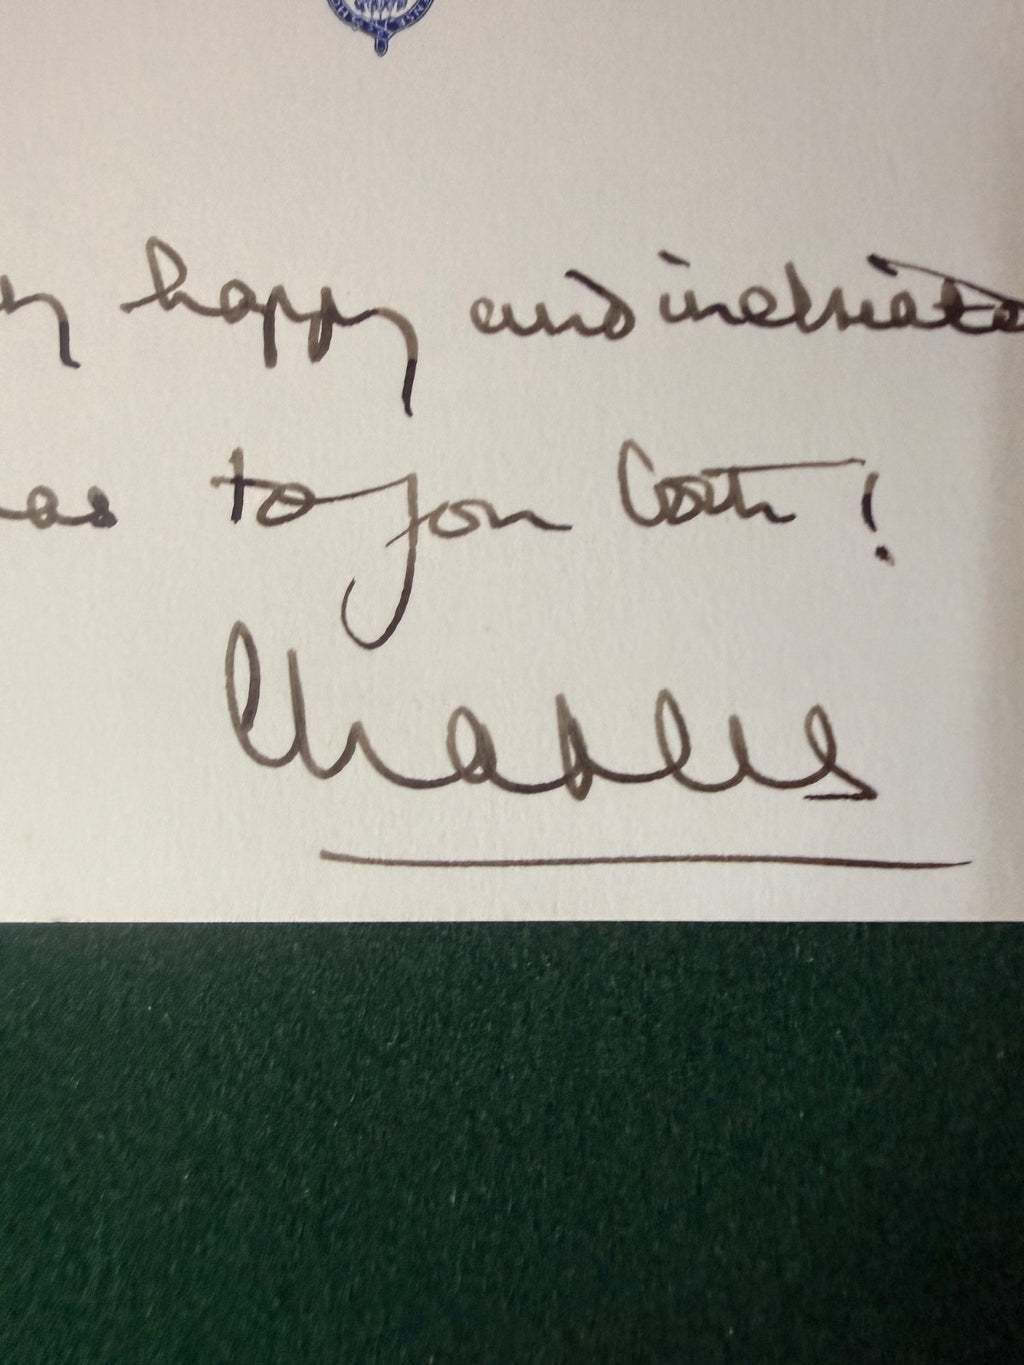 happy and inebriated
as to you both!
Charles